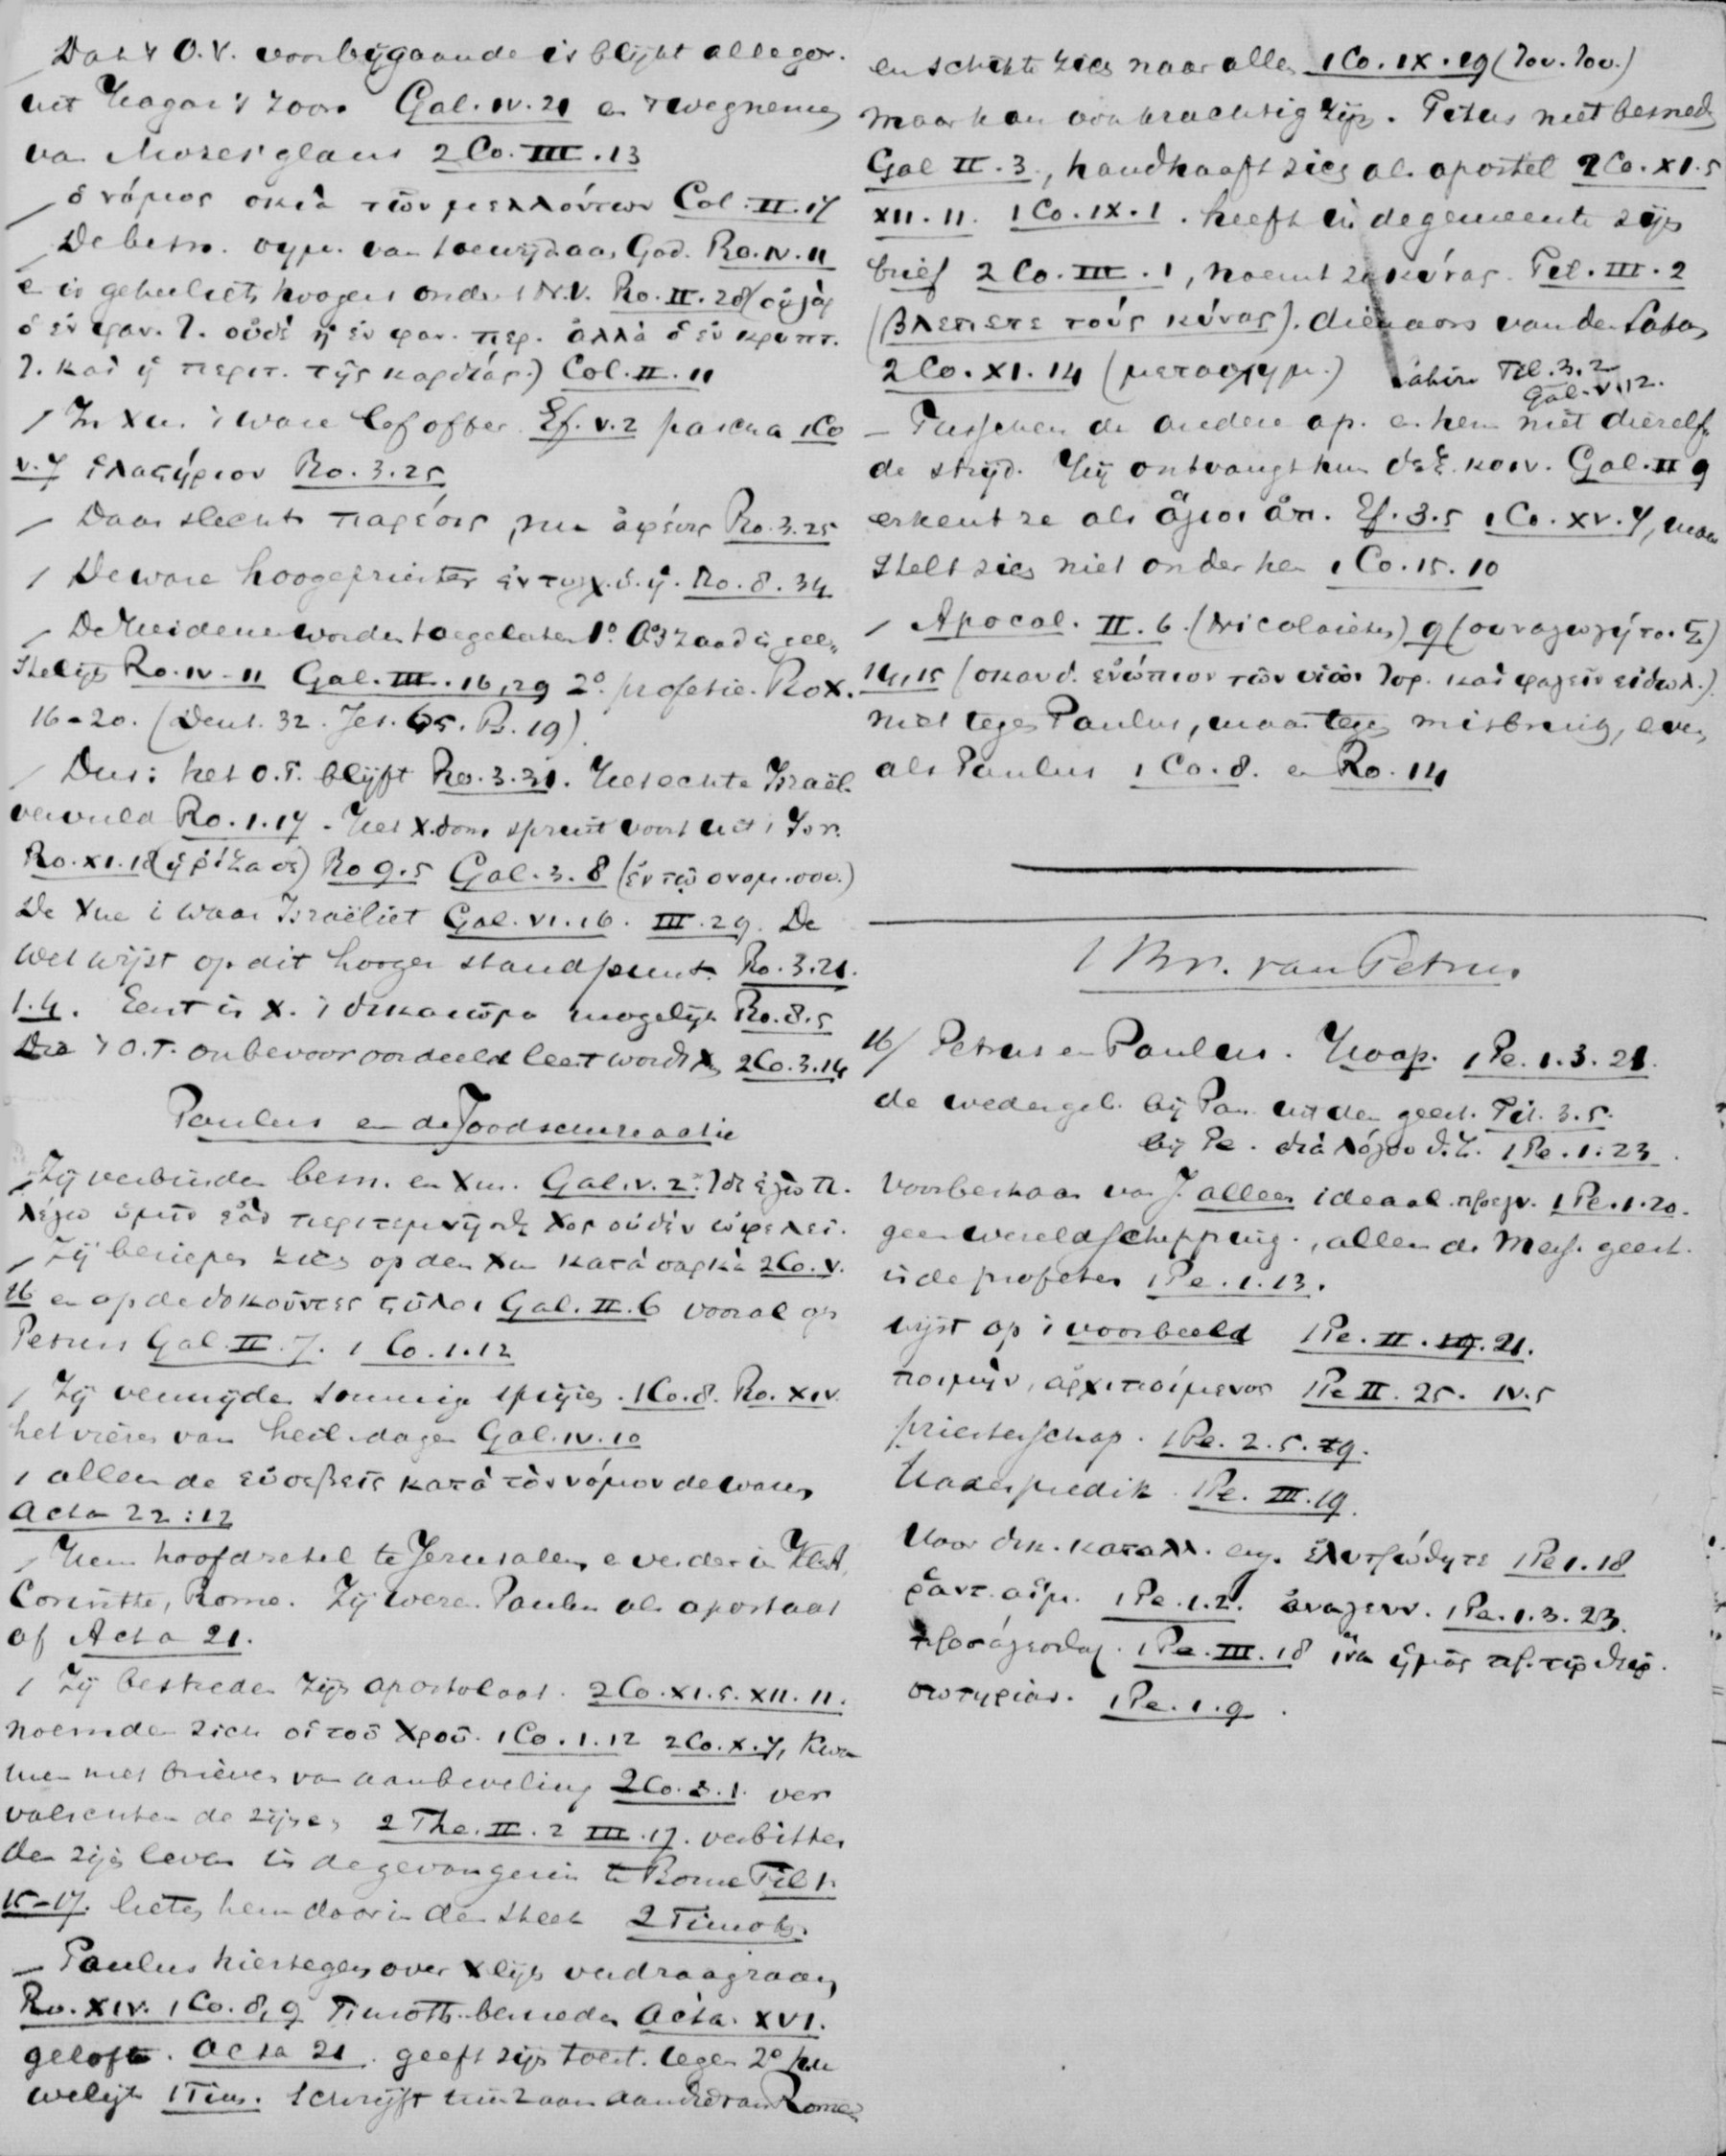 Dat 't O.V. voorbijgaande is blijkt allegor.
uit Hagar's zoon Gal. IV. 21 en 't wegnemen
van Mozes' glans 2 Co. III. 13
ὁ νόμος σκιὰ τῶν μελλόντων Col. II. 17
De besn. van toewijd aan God. Ro. IV. 11
en is geheel iets hoogers onder 't N.V. Ro. II. 28 (οὐ γὰρ
ὁ ἐν φαν. Ἰ. οὐδὲ ἡ ἐν φαν. περ. ἀλλὰ ὁ ἐν κρυπτ.
Ἰ. καὶ ἡ περιτ. τῆς καρδίας.) Col. II. 11
In Xus 't ware lofoffer Ef. V. 2 pascha 1 Co
V. 7 ἱλαστήριον Ro. 3. 25
Daar slechts πάρεσις, nu ἄφεσις Ro. 3. 25
De ware hoogepriester ἐντυγχ. ὑ. ἡ. Ro. 8. 34
De Heidenen worden toegelaten 1º. zaad is gees-
telijk Ro. IV. 11 Gal. III. 16, 29 2º. profetie. Ro X.
16-20. (Deut. 32. Jes. 65. Ps. 19)
Dus: het O.T. blijft Ro. 3. 31. Het echte Israël
vervuld Ro. 1. 17. Het X.dom spruit voort uit 't Isr.
Ro. XI. 18 (ἡ ῥίζα σε) Ro 9. 5 Gal. 3. 8 (ἐν τῷ ονομ. σου.)
De Xne is waar Israëliet Gal. VI. 16. III. 29. De
wet wijst op dit hooger standpunt. Ro. 3. 21.
1. 4. Eerst in X. is δικαίωμα mogelijk Ro. 8. 5
Die 't O.T. onbevooroordeeld leest wordt Xn 2 Co. 3. 14
Paulus en de Joodsche reactie
Zij verbinden besn. en Xus. Gal. V. 2. Ἰδε ἐγὼ Π.
λέγω ὑμῖν ἐὰν περιτεμνησθε Χος οὐδὲν ὠφελεῖ.
Zij beriepen zich op den Xus κατὰ σαρκὰ 2 Co. V.
16 en op de δοκοῦντες στῦλοι Gal. II. 6 vooral op
Petrus Gal. II. 7. 1 Co. 1. 12
Zij vermijden sommige spijzen. 1 Co. 8. Ro. XIV.
het vieren van heil. dagen Gal. IV. 10
allen de εὐσεβεῖς κατὰ τὸν νόμον de waren
Acta 22:12
Hun hoofdzetel te Jeruzalem en verder in Kl. A.
Corinthe, Rome. Zij weren Paulus als apostaat
af Acta 21.
Zij bestreden zijn apostolaat. 2 Co. XI. 5. XII. 11.
noemden zich οἱ τοῦ Χρου. 1 Co. 1. 12 2 Co. X. 7, kwa
men met brieven van aanbeveling 2 Co. 3. 1. ver
valschten de zijne, 2 The. II. 2 III. 17. verbitter
den zijn leven in de gevangenis te Rome Fil 1.
15-17. lieten hem daar in den steek 2 Timoth.
Paulus hiertegenover Xlijk verdraagzaam,
Ro. XIV. 1 Co. 8, 9 Timoth. besneden Acta. XVI.
gelofte. Acta 21. geeft zijn toest. tegen 2º hu
welijk 1 Tim. schrijft aan die van Rome
en schikte zich naar allen 1 Co. IX. 19 (Ἰου. Ἰου.)
maar kan ook krachtig zijn. Titus niet besneden
Gal II. 3, handhaaft zich als apostel 2 Co. XI. 5
XII. 11. 1 Co. IX. 1. heeft in de gemeente zijn
brief 2 Co. III. 1, noemt ze κύνας Fil. III. 2
(βλεπετε τοὺς κύνας). dienaars van den Satan
2 Co. XI. 14 (μετασχημ.) Fil. 3. 2
Gal. V. 12.
Tusschen de andere ap. en hem niet diezelf-
de strijd. Hij ontvangt hun δεξ. κοιν. Gal. II 9
erkent ze als ἅγιοι ἀπ. Ef. 3. 5 1 Co. XV. 7, maar
stelt zich niet onder hen 1 Co. 15. 10
Apocal. II. 6. (Nicolaieten) 9 (συναγωγὴ το. Σ)
14, 15 (σκανδ. ἐνώπιον τῶν υἱῶν Ἰσρ. καὶ φαγεῖν εἰδωλ.)
niet tegen Paulus, maar tegen misbruik, even
als Paulus 1 Co. 8. en Ro. 14
1 Br. van Petrus
16/ Petrus en Paulus. Hoop. 1 Pe. 1. 3. 21.
de wedergeb. bij Pau. uit den geest. Tit. 3. 5.
bij Pe. διὰ λόγου θ. ζ. 1 Pe. 1:23.
Voorbestaan van J. alleen ideaal. προεγν. 1 Pe. 1. 20.
geen wereldschepping., alleen de Mess. geest.
in de profeten 1 Pe. 1. 13.
wijst op 't voorbeeld 1 Pe. II. 19. 21.
ποιμὴν, ἀρχιποίμενος 1 Pe II. 25. IV. 5
priesterschap. 1 Pe. 2. 5. 9.
Hadespredik 1 Pe. III. 19.
Voor δικ. καταλλ. ἐλυτρώθητε 1 Pe 1. 18
ῥαντ. αἵμ. 1 Pe. 1. 2. ἀναγενν. 1 Pe. 1. 3. 23.
προσάγεσθαι. 1 Pe. III. 18 ἵνα ἡμᾶς πρ. τῷ θεῷ.
σωτηρίαν. 1 Pe. 1. 9.